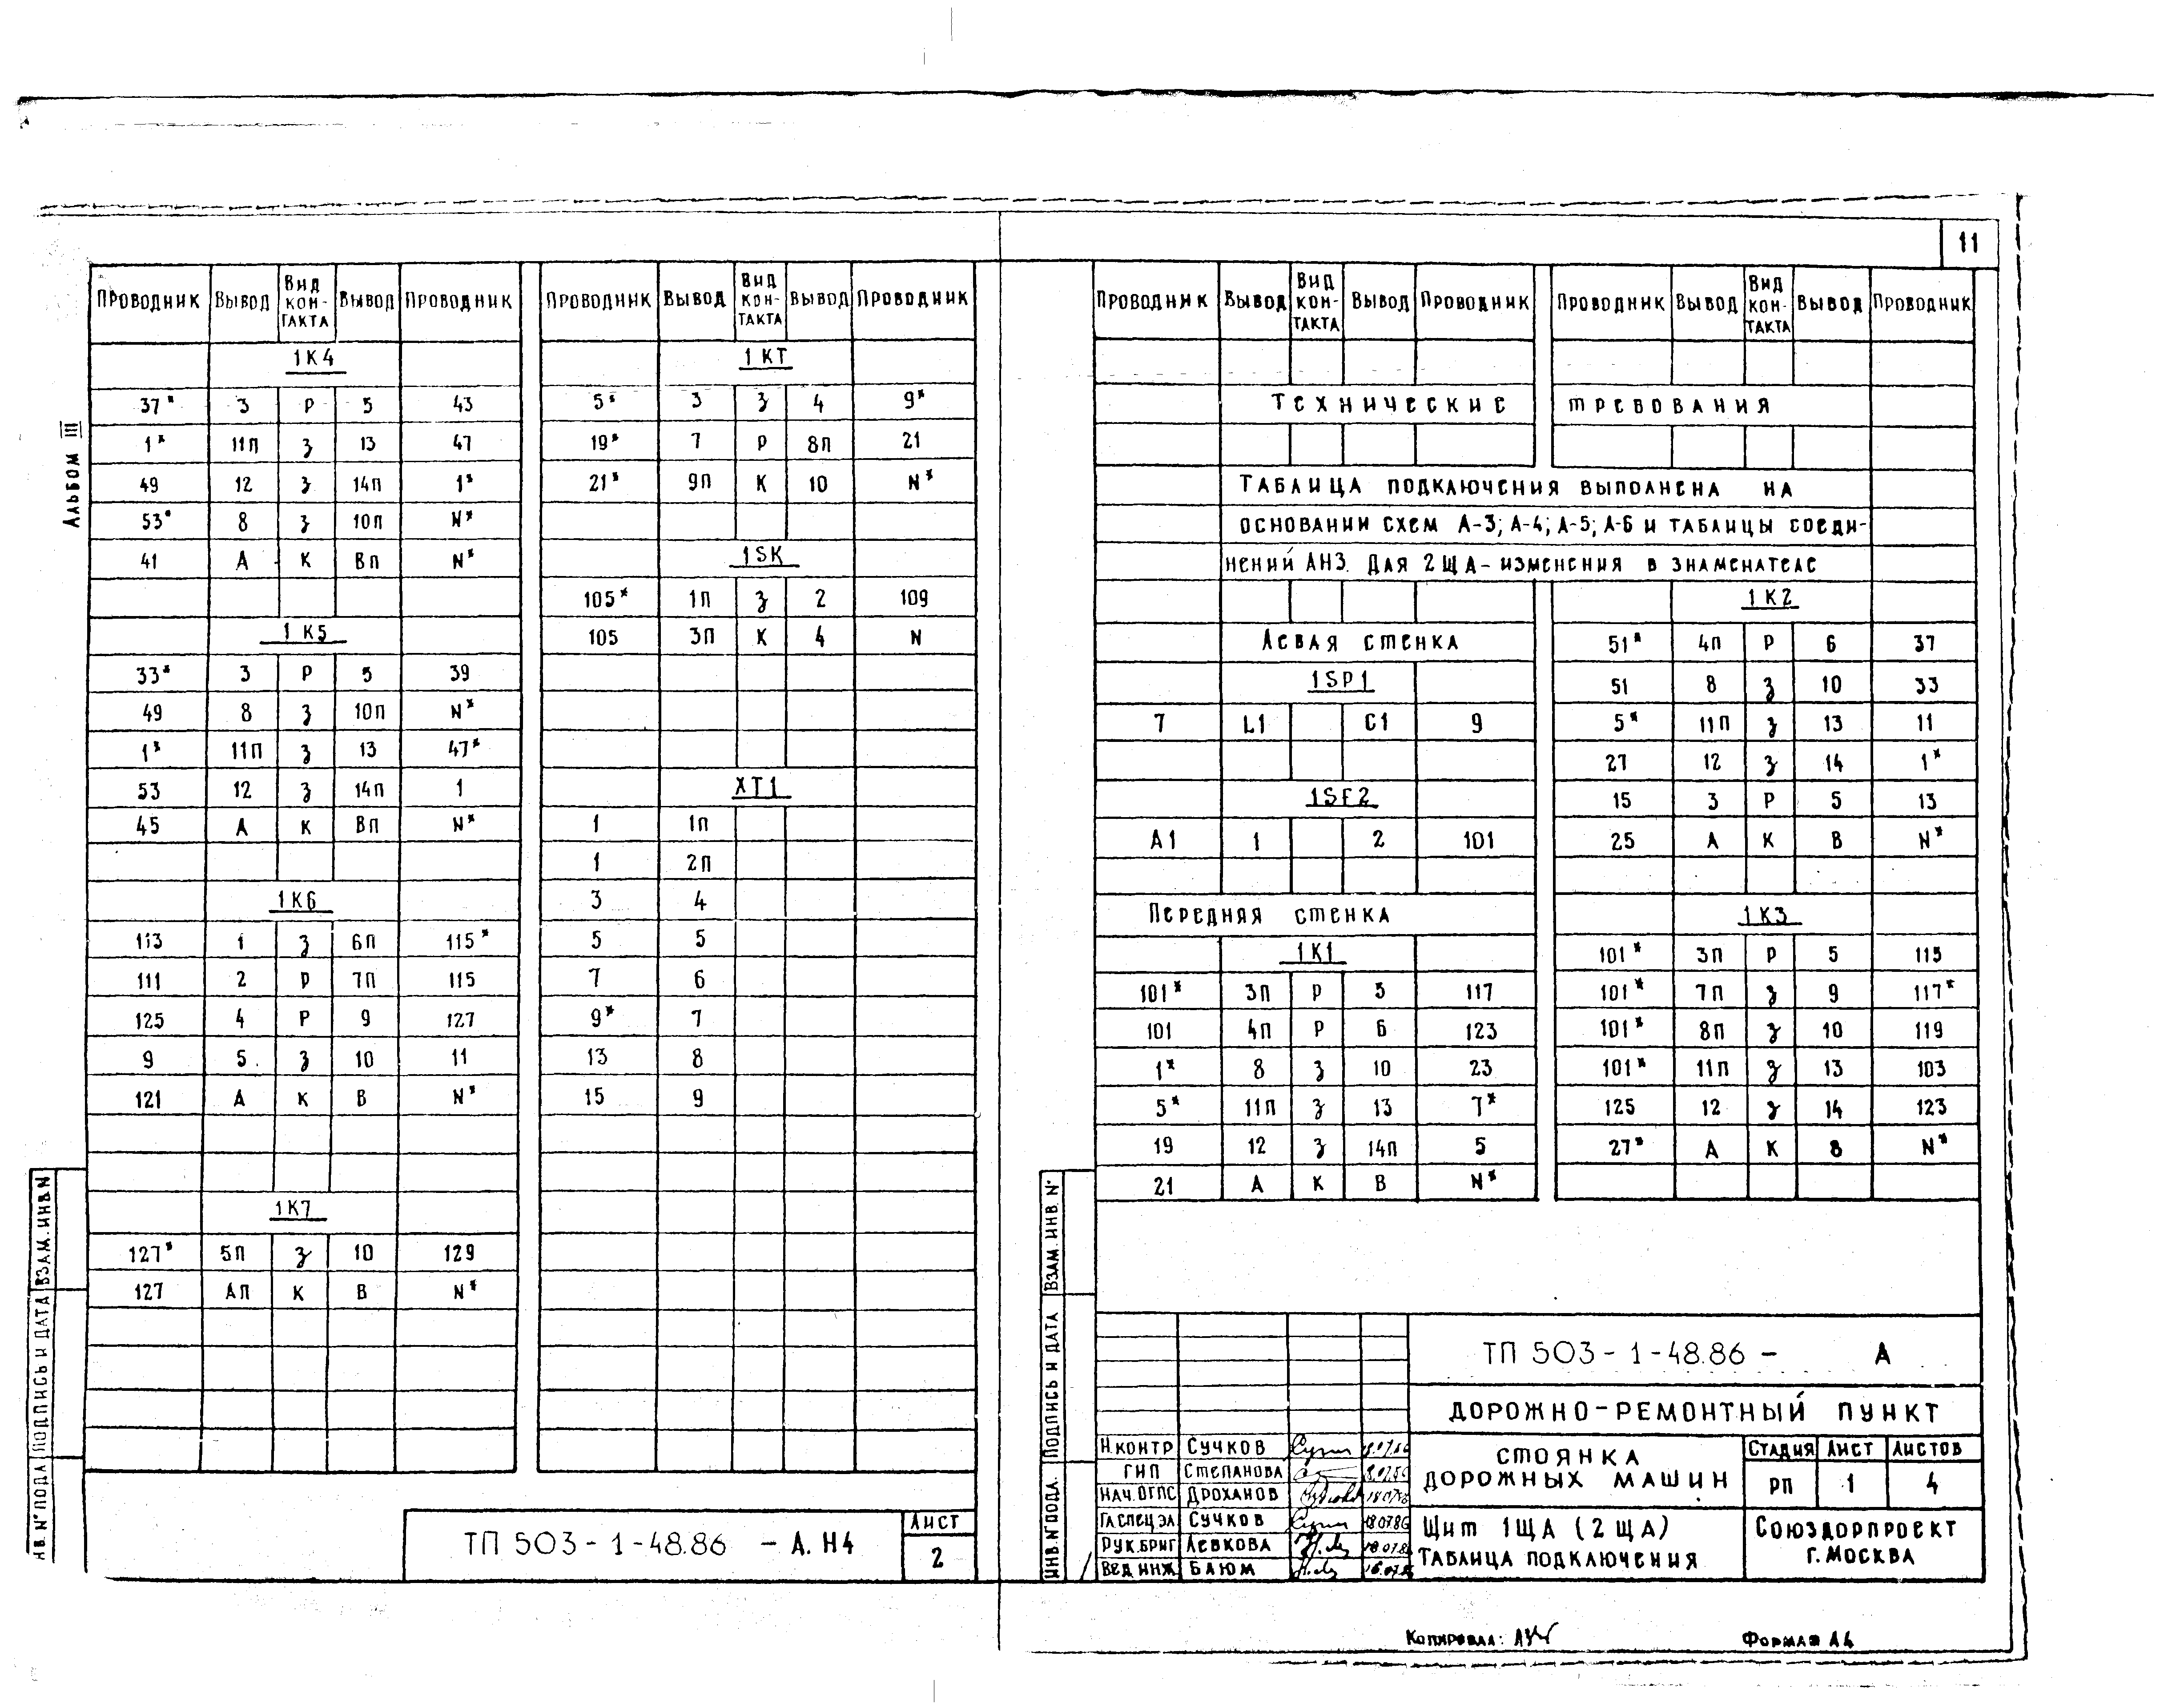 Альбом III
Проводник Вывод Вид контакта Вывод Проводник
1К4
37* 3 Р 5 43
1* 11П З 13 47
49 12 З 14П 1*
53* 8 З 10П N*
41 А К ВП N*
1К5
33* 3 Р 5 39
49 8 З 10П N*
1* 11П З 13 47*
53 12 З 14П 1
45 А К ВП N*
1К6
113 1 З 6П 115*
111 2 Р 7П 115
125 4 Р 9 127
9 5 З 10 11
121 А К В N*
1К7
127* 5П З 10 129
127 АП К В N*
Проводник Вывод Вид контакта Вывод Проводник
1КТ
5* 3 З 4 9*
19* 7 Р 8П 21
21* 9П К 10 N*
1SK
105* 1П З 2 109
105 3П К 4 N
XT1
1 1П
1 2П
3 4
5 5
7 6
9* 7
13 8
15 9
ТП 503-1-48.86 - А.Н4
Лист
2
ИНВ. № ПОДЛ. ПОДПИСЬ И ДАТА ВЗАМ. ИНВ. №
11
Проводник Вывод Вид контакта Вывод Проводник
Проводник Вывод Вид контакта Вывод Проводник
Технические требования
Таблица подключения выполнена на
основании схем А-3; А-4; А-5; А-6 и таблицы соеди-
нений АН3. Для 2ЩА - изменения в знаменателе
Левая стенка
1SP1
7 L1 C1 9
1SF2
А1 1 2 101
Передняя стенка
1К1
101* 3П Р 5 117
101 4П Р 6 123
1* 8 З 10 23
5* 11П З 13 7*
19 12 З 14П 5
21 А К В N*
1К2
51* 4П Р 6 37
51 8 З 10 33
5* 11П З 13 11
27 12 З 14 1*
15 3 Р 5 13
25 А К В N*
1К3
101* 3П Р 5 115
101* 7П З 9 117*
101* 8П З 10 119
101* 11П З 13 103
125 12 З 14 123
27* А К В N*
ИНВ. № ПОДЛ. ПОДПИСЬ И ДАТА ВЗАМ. ИНВ. №
ТП 503-1-48.86 - А
Дорожно-ремонтный пункт
Н.контр Сучков 18.07.86
ГИП Степанова 18.07.86
Нач.ОГПС Дроханов 18.07.86
Гл.спец.эл Сучков 18.07.86
Рук.бриг Левкова 18.07.86
Вед инж Баюм 16.07.86
Стоянка
дорожных машин
Стадия Лист Листов
РП 1 4
Щит 1ЩА (2ЩА)
Таблица подключения
Союздорпроект
г. Москва
Копировал:
Формат А4